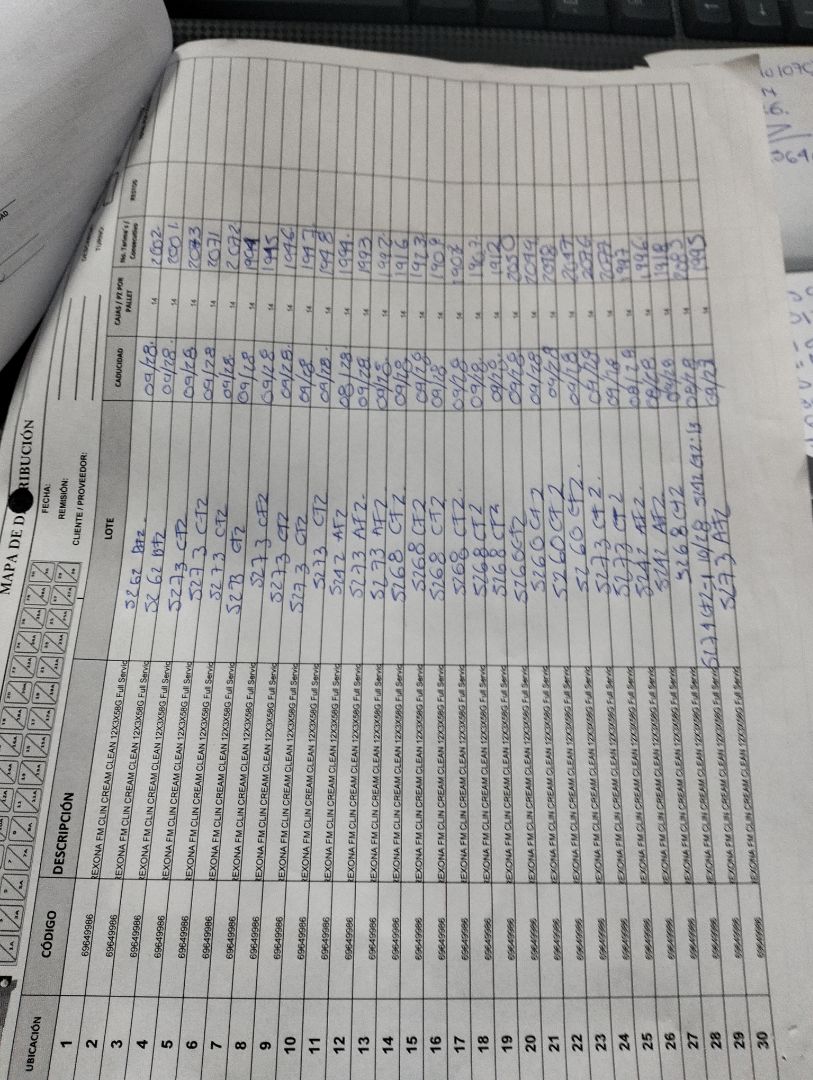 MAPA DE D RIBUCIÓN
FECHA:
REMISIÓN:
CLIENTE / PROVEEDOR:
TURNO:
UBICACIÓN CÓDIGO DESCRIPCIÓN LOTE CADUCIDAD CAJAS / PZ POR PALLET No. Tarima's / Consecutivo RESTOS
1 69649986 REXONA FM CLIN CREAM CLEAN 12X3X58G Full Servic 5262 09/28. 14 2002
2 69649986 REXONA FM CLIN CREAM CLEAN 12X3X58G Full Servic 5262 09/28. 14 2001
3 69649986 REXONA FM CLIN CREAM CLEAN 12X3X58G Full Servic 5273 CF2 09/28 14 2073
4 69649986 REXONA FM CLIN CREAM CLEAN 12X3X58G Full Servic 5273 CF2 09/28 14 2071
5 69649986 REXONA FM CLIN CREAM CLEAN 12X3X58G Full Servic 5273 CF2 09/28. 14 2072
6 69649986 REXONA FM CLIN CREAM CLEAN 12X3X58G Full Servic 5273 CF2 09/28 14
7 69649986 REXONA FM CLIN CREAM CLEAN 12X3X58G Full Servic 5273 CF2 09/28 14 1945
8 69649986 REXONA FM CLIN CREAM CLEAN 12X3X58G Full Servic 5273 CF2 09/28. 14 1946
9 69649986 REXONA FM CLIN CREAM CLEAN 12X3X58G Full Servic 5273 CF2 09/28 14 1947
10 69649986 REXONA FM CLIN CREAM CLEAN 12X3X58G Full Servic 5273 CF2 09/28. 14 1948
11 69649986 REXONA FM CLIN CREAM CLEAN 12X3X58G Full Servic 5242 AF2 08/28 14 1994.
12 69649986 REXONA FM CLIN CREAM CLEAN 12X3X58G Full Servic 5273 AF2. 09/28 14 1993
13 69649986 REXONA FM CLIN CREAM CLEAN 12X3X58G Full Servic 5273 AF2. 09/28 14 1992
14 69649986 REXONA FM CLIN CREAM CLEAN 12X3X58G Full Servic 5268 CF2. 09/28 14 1916
15 69649986 REXONA FM CLIN CREAM CLEAN 12X3X58G Full Servic 5268 CF2 09/28 14 1923
16 69649986 REXONA FM CLIN CREAM CLEAN 12X3X58G Full Servic 5268 CF2 09/28 14 1909
17 69649986 REXONA FM CLIN CREAM CLEAN 12X3X58G Full Servic 5268 CF2. 09/28 14 1903
18 69649986 REXONA FM CLIN CREAM CLEAN 12X3X58G Full Servic 5268 CF2 09/28. 14
19 69649986 REXONA FM CLIN CREAM CLEAN 12X3X58G Full Servic 5268 CF2 09/28. 14 1912
20 69649986 REXONA FM CLIN CREAM CLEAN 12X3X58G Full Servic 5260 CF2 09/28 14 2050
21 69649986 REXONA FM CLIN CREAM CLEAN 12X3X58G Full Servic 5260 CF2 09/28 14 2049
22 69649986 REXONA FM CLIN CREAM CLEAN 12X3X58G Full Servic 5260 CF2 09/28 14 2048
23 69649986 REXONA FM CLIN CREAM CLEAN 12X3X58G Full Servic 5260 CF2. 09/28 14 2047
24 69649986 REXONA FM CLIN CREAM CLEAN 12X3X58G Full Servic 5273 CF2. 09/28 14 2076
25 69649986 REXONA FM CLIN CREAM CLEAN 12X3X58G Full Servic 5273 CF2 09/28 14 2077
26 69649986 REXONA FM CLIN CREAM CLEAN 12X3X58G Full Servic 5242 AF2. 08/28 14 1997
27 69649986 REXONA FM CLIN CREAM CLEAN 12X3X58G Full Servic 5242 AF2. 08/28 14 1996
28 69649986 REXONA FM CLIN CREAM CLEAN 12X3X58G Full Servic 5268 CF2 09/28 14 1918
29 69649986 REXONA FM CLIN CREAM CLEAN 12X3X58G Full Servic CF2-1 10/28 5242 CF2:13 08/28 14
30 69649986 REXONA FM CLIN CREAM CLEAN 12X3X58G Full Servic 5273 AF2 09/27 14 1995